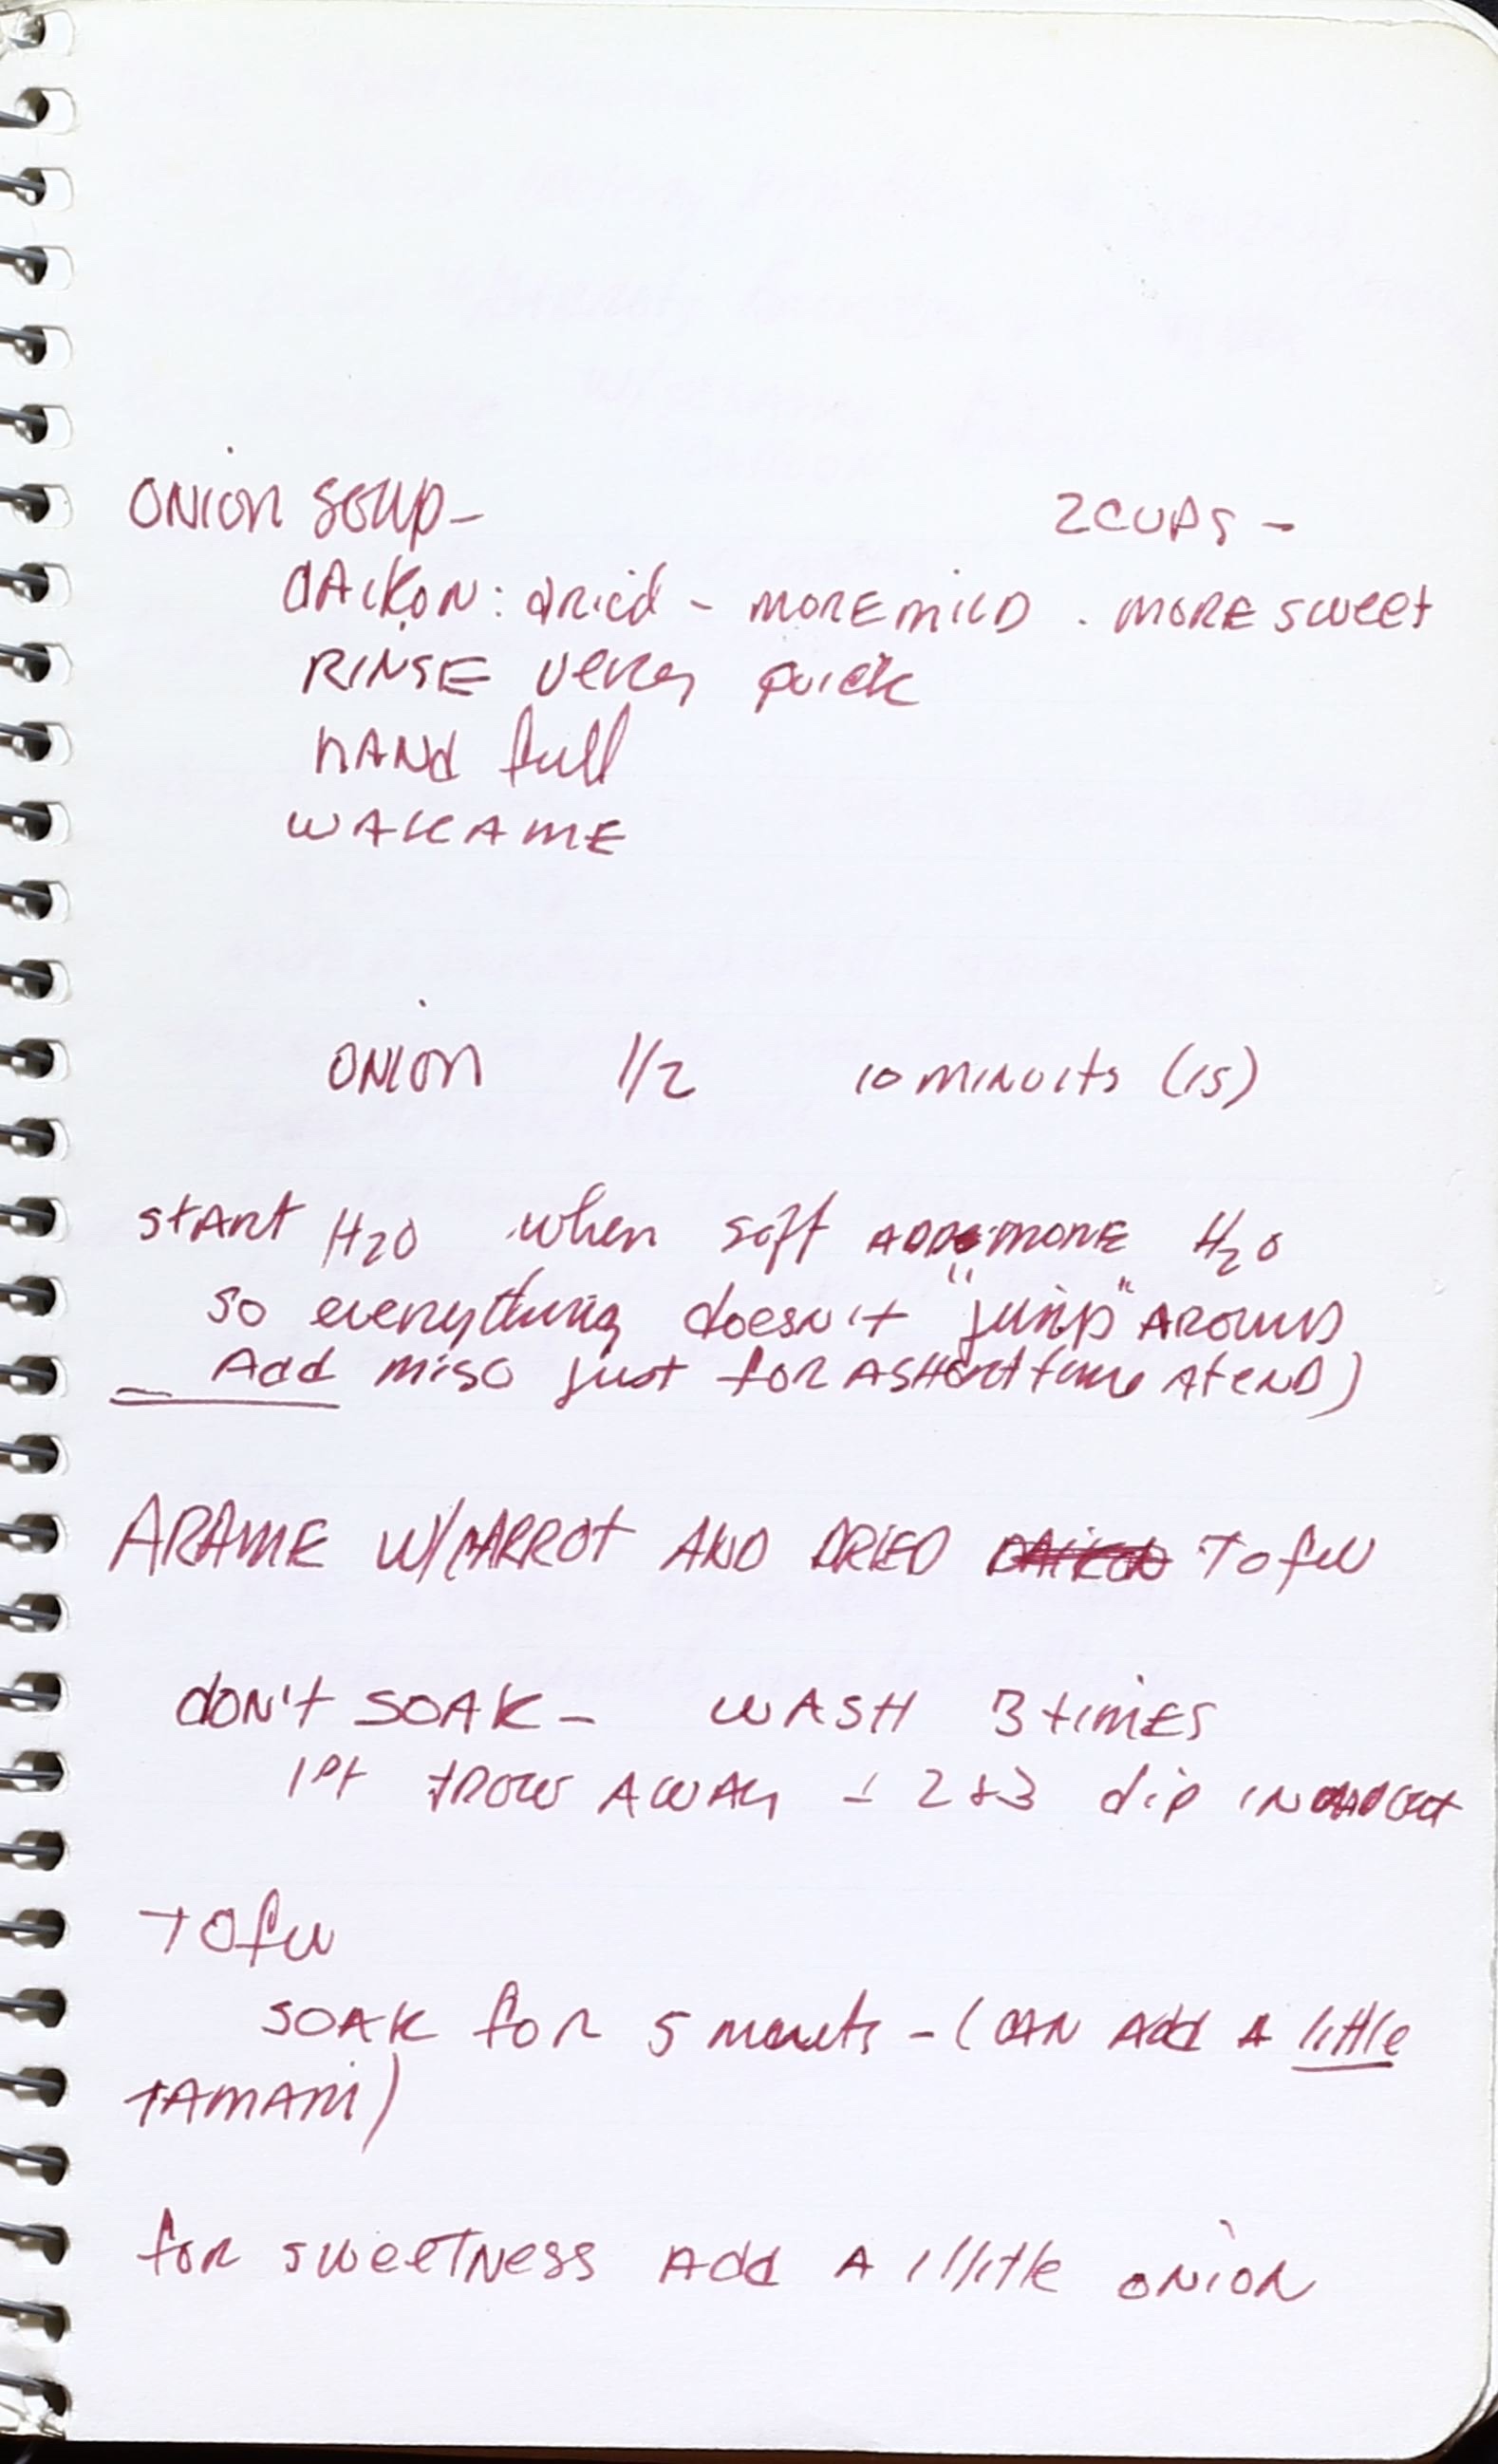 ONION SOUP - 2 CUPS -
DAIKON: dried - MORE MILD . MORE SWEET
RINSE VERY QUICK
HAND full
WAKAME
ONION 1/2 10 MINUITS (15)
START H2O when soft ADD MORE H2O
SO everything doesn't "jump" AROUND
Add miso just for A SHORT time At END)
ARAME W/CARROT AND DRIED DAIKON TOFU
DON'T SOAK - WASH 3 TIMES
1st TROW AWAY - 2 & 3 dip IN out
TOFU
SOAK for 5 - (CAN Add A little
TAMARI)
for SWEETNESS Add A little ONION